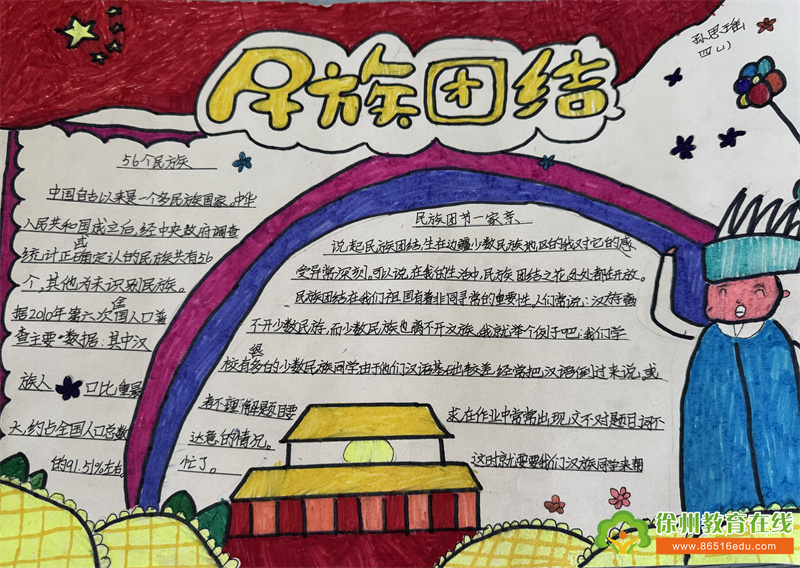 民族团结
孙思瑶
四(1)
56个民族
中国自古以来是一个多民族国家。中华
人民共和国成立后,经中央政府调查
统计正式确定认的民族共有56
个,其他为未识别民族。
据2010年第六次全国人口普
查主要数据:其中汉
族人口比重最
大,约占全国人口总数
的91.51%左右。
民族团节一家亲
说起民族团结,生在边疆少数民族地区的我对它的感
受异常深刻,可以说,在我的生活中,民族团结之花处处都在开放。
民族团结在我们祖国有着非同寻常的重要性,人们常说:汉族离
不开少数民族,而少数民族也离不开汉族。我就举个例子吧:我们学
校有很多的少数民族同学由于他们汉语基础较差,经常把汉语倒过来说,或
者不理解题目要求,在作业中常常出现文不对题目词不
达意的情况。
这时就需要我们汉族同学来帮
忙了。
徐州教育在线
www.86516edu.com